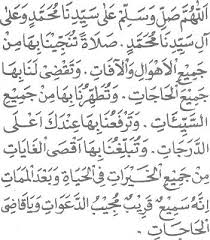 اَللّٰهُمَّ صَلِّ وَسَلِّمْ عَلَى سَيِّدِنَا مُحَمَّدٍ وَعَلَى
آلِ سَيِّدِنَا مُحَمَّدٍ. صَلَاةً تُنَجِّيْنَا بِهَا مِنْ
جَمِيْعِ الْأَهْوَالِ وَالْآفَاتِ. وَتَقْضِيْ لَنَا بِهَا
جَمِيْعَ الْحَاجَاتِ. وَتُطَهِّرُنَا بِهَا مِنْ جَمِيْعِ
السَّيِّئَاتِ. وَتَرْفَعُنَا بِهَا عِنْدَكَ اَعْلَى
الدَّرَجَاتِ. وَتُبَلِّغُنَا بِهَا اَقْصَى الْغَايَاتِ
مِنْ جَمِيْعِ الْخَيْرَاتِ فِي الْحَيَاةِ وَبَعْدَ الْمَمَاتِ
اِنَّهُ سَمِيْعٌ قَرِيْبٌ مُجِيْبُ الدَّعَوَاتِ وَيَا قَاضِيَ
الْحَاجَاتِ.